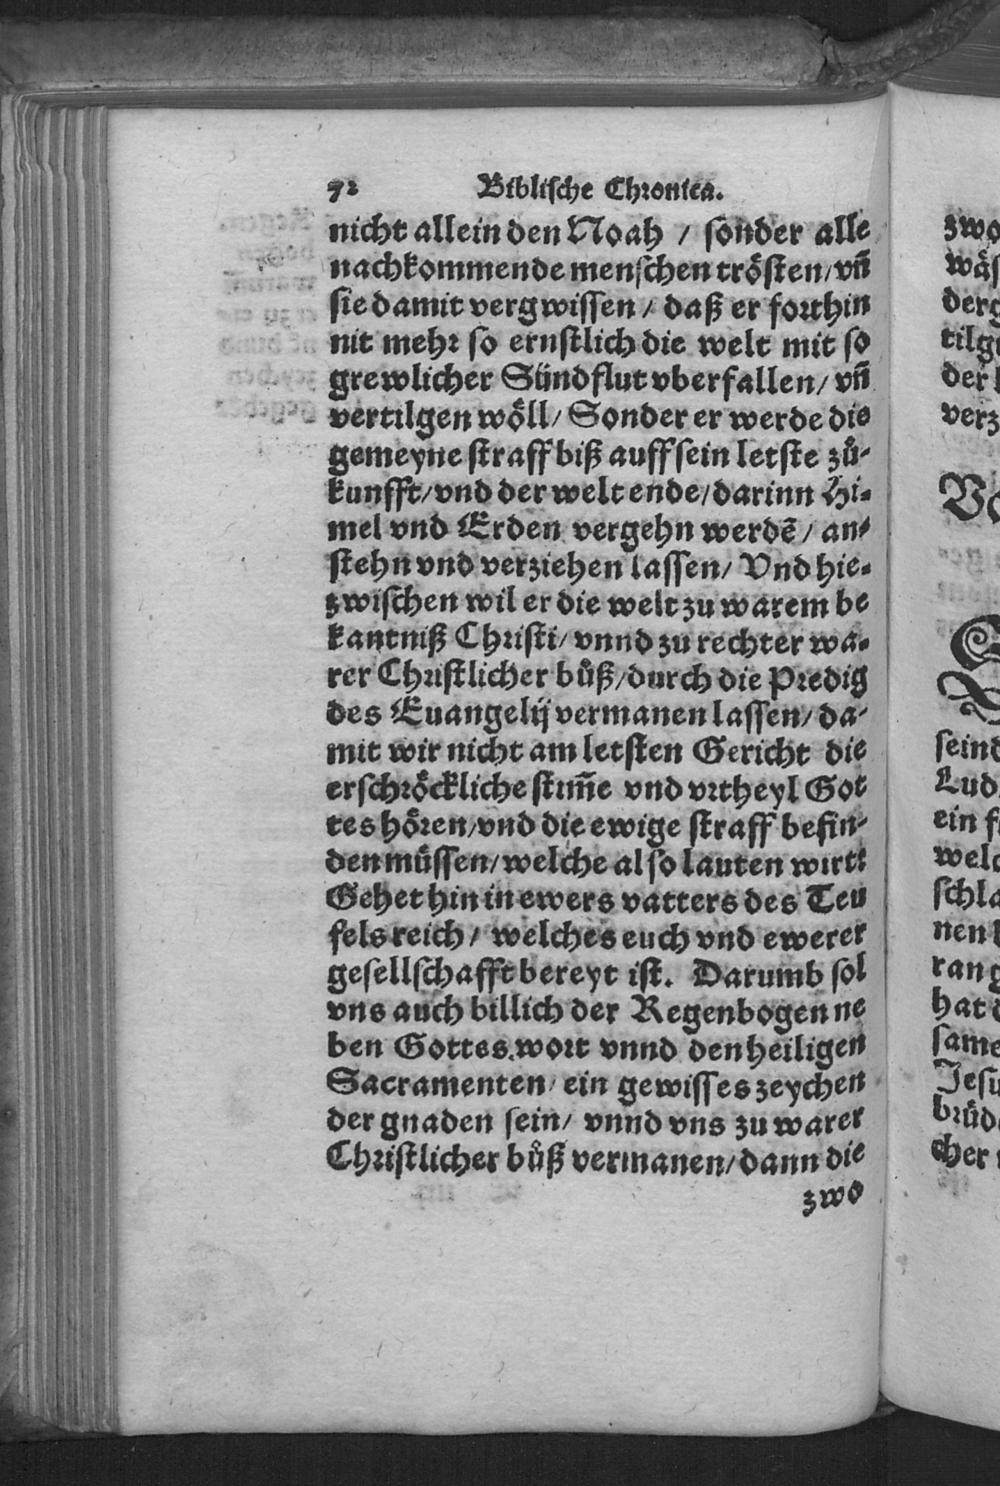 72 Biblische Chronica.
nicht allein den Noah / sonder alle
nachkommende menschen trösten/ vñ
sie damit vergwissen / daß er forthin
nit mehr so ernstlich die welt mit so
grewlicher Sündflut vberfallen/ vñ
vertilgen wöll/ Sonder er werde die
gemeyne straff biß auff sein letste zů-
kunfft/ vnd der welt ende/ darinn Hi-
mel vnd Erden vergehn werdẽ / an-
stehn vnd verziehen lassen/ Vnd hie-
zwischen wil er die welt zu warem be
kantniß Christi/ vnnd zu rechter wa-
rer Christlicher bůß/ durch die Predig
des Euangelij vermanen lassen/ da-
mit wir nicht am letsten Gericht die
erschröckliche stim̃e vnd vrtheyl Got
tes hören/ vnd die ewige straff befin-
den müssen/ welche also lauten wirt:
Gehet hin in ewers vatters des Teu
fels reich / welches euch vnd ewerer
gesellschafft bereyt ist. Darumb sol
vns auch billich der Regenbogen ne
ben Gottes wort vnnd den heiligen
Sacramenten/ ein gewisses zeychen
der gnaden sein/ vnnd vns zu warer
Christlicher bůß vermanen/ dann die
zwo
zwo
wäs
derg
tilg
der
verz
Vo
seind
Lud
ein f
welc
schla
nen
ran g
hat d
same
Jesu
brüd
cher